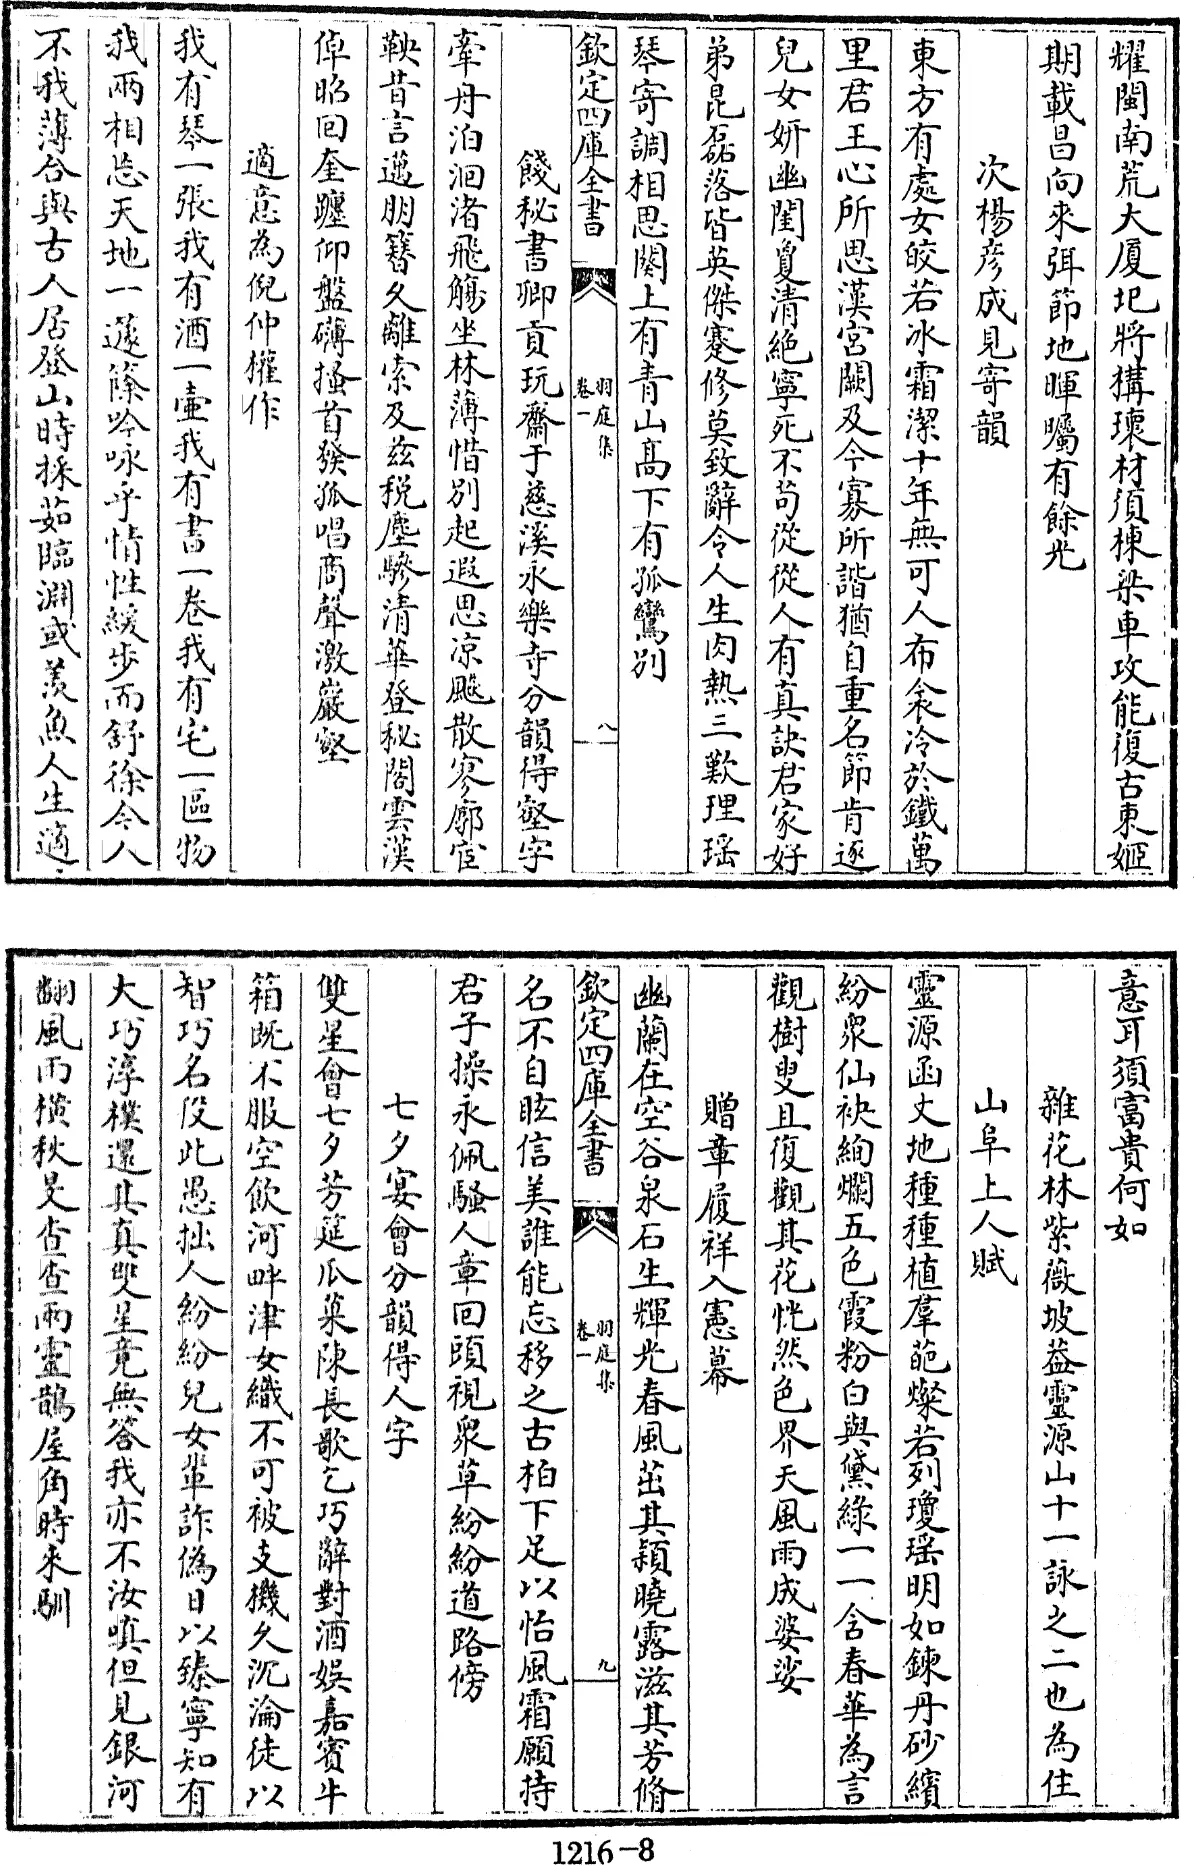 耀閩南荒大厦圯將搆瓌材須棟梁車攻能復古東姬
期載昌向來弭節地暉矚有餘光
次楊彦成見寄韻
東方有處女皎若冰霜潔十年無可人布衾冷於鐵萬
里君王心所思漢宮闕及今寡所諧猶自重名節肯逐
兒女妍幽閨敻清絶寧死不苟從從人有真訣君家好
弟昆磊落皆英傑蹇修莫致辭令人生肉熱三歎理瑶
琴寄調相思闋上有青山高下有孤鸞别
欽定四庫全書
羽庭集
卷一
八
餞秘書卿貢玩齋于慈溪永樂寺分韻得壑字
牽舟泊洄渚飛觴坐林薄惜别起遐思凉飈散寥廓宦
鞅昔言邁朋簪久離索及兹税塵驂清華登秘閣雲漢
倬昭回奎躔仰盤礴搔首發孤唱商聲激巖壑
適意為倪仲權作
我有琴一張我有酒一壷我有書一卷我有宅一區物
我兩相忘天地一蘧篨吟咏乎情性緩步而舒徐今人
不我薄合與古人居登山時採茹臨淵或羨魚人生適
意耳須富貴何如
雜花林紫薇坡葢靈源山十一詠之二也為住
山阜上人賦
靈源函丈地種種植羣葩燦若列瓊瑶明如鍊丹砂繽
紛衆仙袂絢爛五色霞粉白與黛綠一一含春華為言
觀樹叟且復觀其花恍然色界天風雨成婆娑
贈章履祥入憲幕
幽蘭在空谷泉石生輝光春風茁其穎曉露滋其芳脩
欽定四庫全書
羽庭集
卷一
九
名不自眩信美誰能忘移之古柏下足以怡風霜願持
君子操永佩騷人章回頭視衆草紛紛道路傍
七夕宴會分韻得人字
雙星會七夕芳筵瓜菓陳長歌乞巧辭對酒娱嘉賓牛
箱既不服空飲河畔津女織不可被支機久沉淪徒以
智巧名役此愚拙人紛紛兒女輩詐偽日以臻寧知有
大巧淳樸還其真雙星竟無答我亦不汝嗔但見銀河
翻風雨横秋旻杳杳兩靈鵲屋角時來馴
1216-8